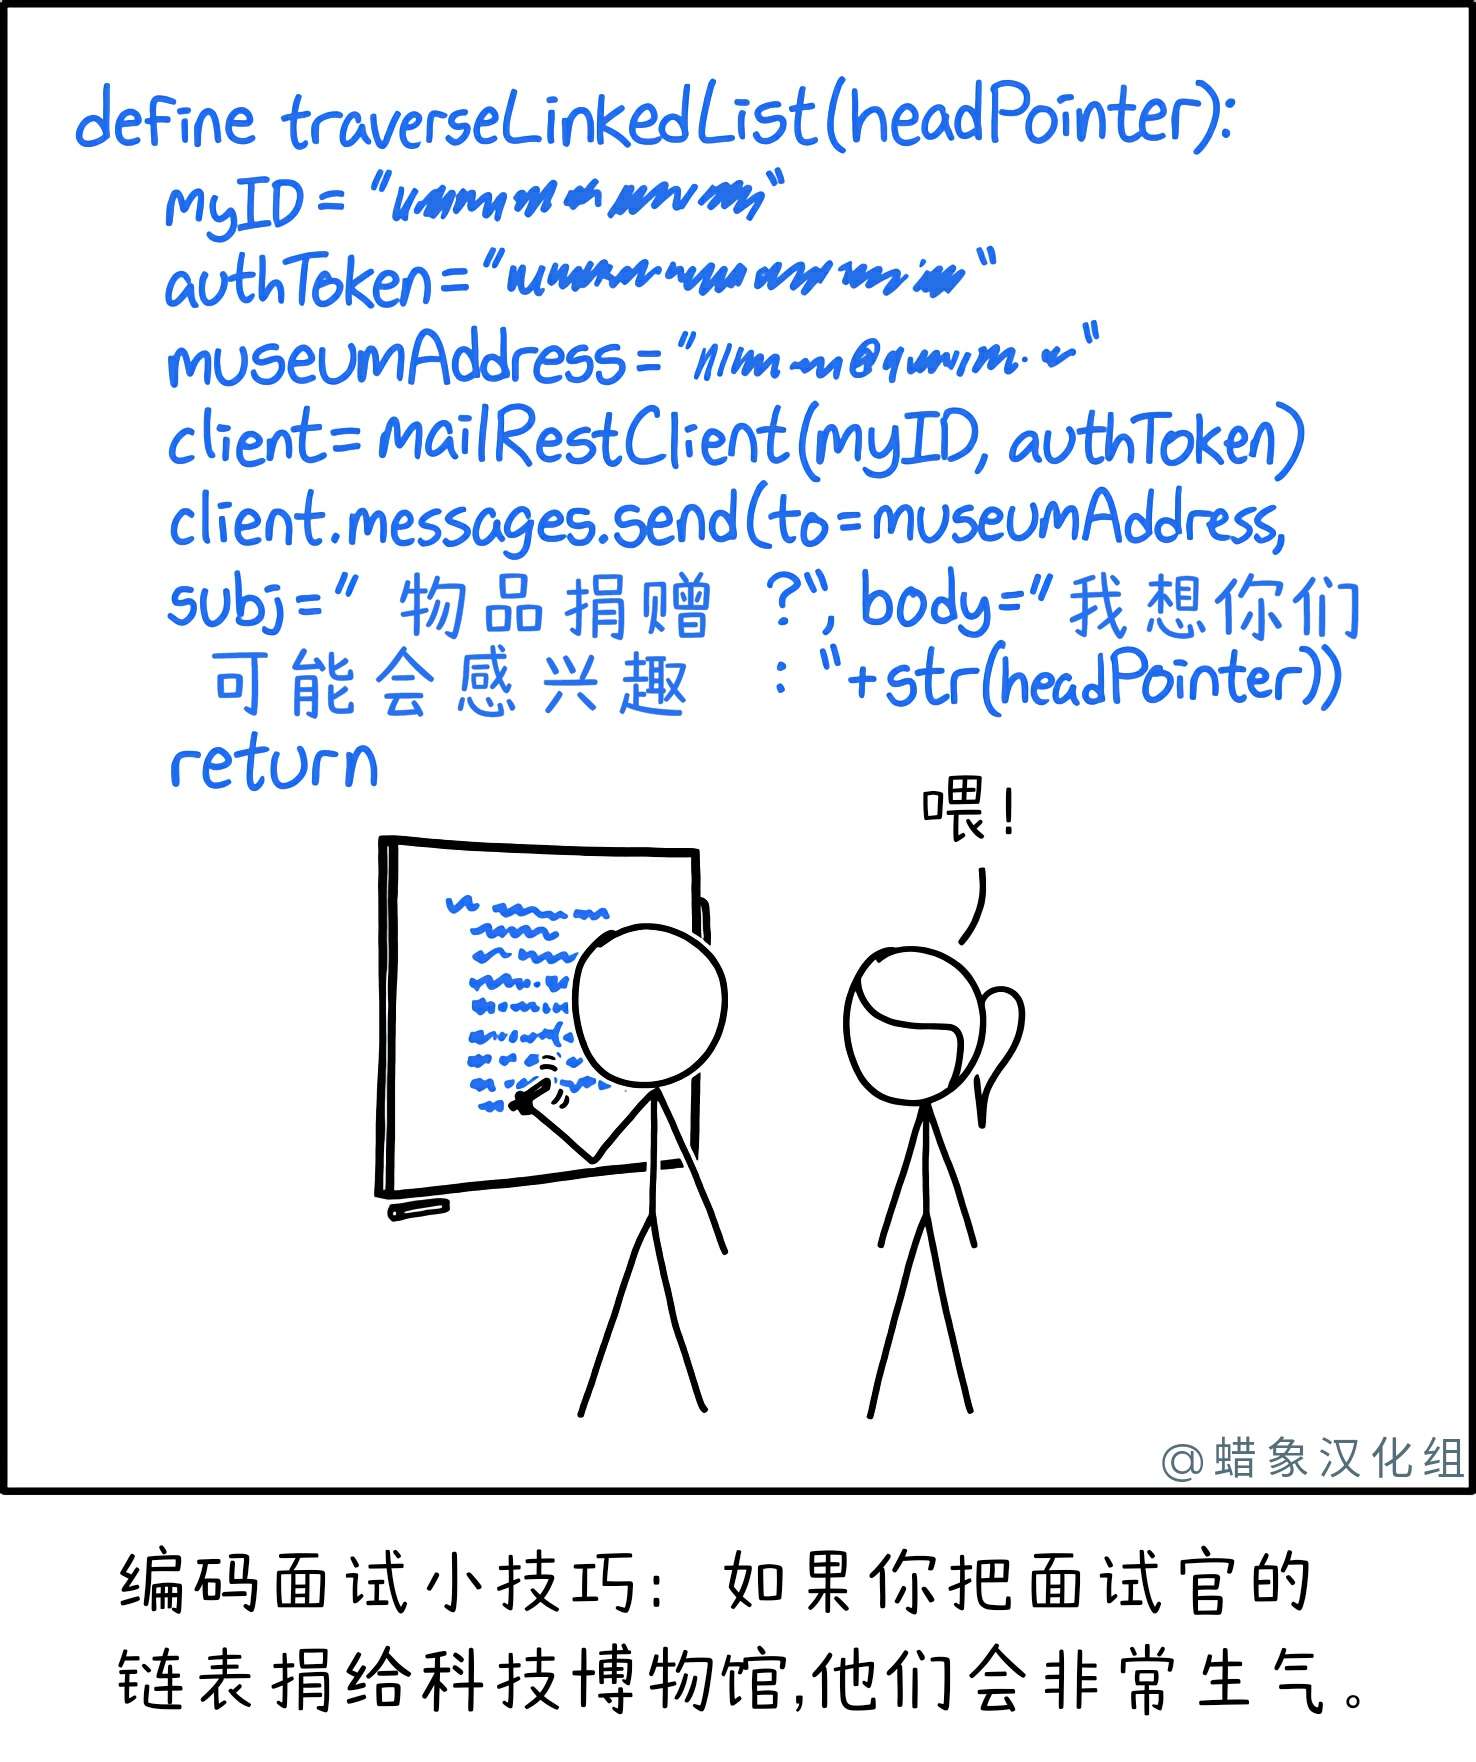 define traverseLinkedList(headPointer):
myID = " "
authToken = " "
museumAddress = " "
client = mailRestClient(myID, authToken)
client.messages.send(to=museumAddress,
subj=" 物品捐赠 ?", body="我想你们
可能会感兴趣 : "+str(headPointer))
return
喂!
@蜡象汉化组
编码面试小技巧: 如果你把面试官的
链表捐给科技博物馆,他们会非常生气。